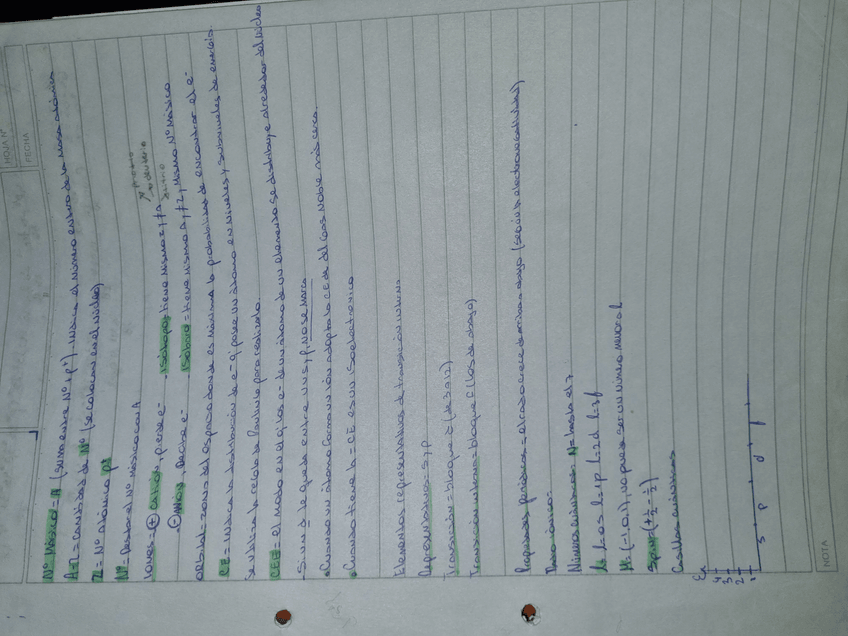 HOJA Nº
FECHA
Nº Másico = A (suma entre Nº + p⁺) - indica el número entero de la masa atómica
A-Z = cantidad de Nº (se colocan en el núcleo)
Z = Nº atómico p⁺
Nº = Restar el Nº másico con A
Iones = ⊕ catión, pierde e⁻ - isótopos = tiene mismo z, ≠a
- ⊖ anión, recibe e⁻ - isóbaro = tiene mismo a, ≠z, mismo Nº Másico
Orbital = zona del espacio donde es máxima la probabilidad de encontrar el e⁻
CE = indica la distribución de e⁻ q' posee un átomo en niveles y subniveles de energía.
Se utiliza la regla de Pauling para realizarlo.
CEE = el modo en el q' los e⁻ de un átomo de un elemento se distribuye alrededor del núcleo
- Si un d le queda entre un s, p, no se marca
• Cuando un átomo forma un ión adopta la CE de del Gas Noble más cerca.
• Cuando tiene la = CE es un isoelectronico
Elementos representativos de transición interna
Representativos = s, p
Transición = bloque d (de 3 a 12)
Transición interna = bloque f (los de abajo)
Propiedades periódicas = el radio crece de arriba a abajo (según la electronegatividad)
Radio iónico =
Números cuánticos: N = hasta el 7
l = l=0 s l=1 p l=2 d l=3 f
Ml (-1,0,1), no puede ser un número mayor a l
Spin = (+½ -½)
Casillas cuánticas
En
4
3
2
1
s p d f
NOTA